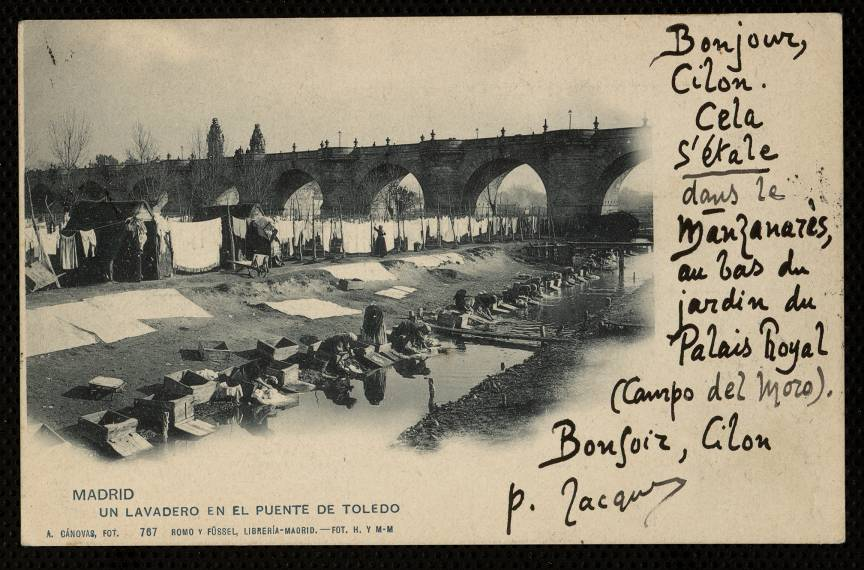 Bonjour,
Cilon.
Cela
s'étale
dans le
Manzanarès,
au bas du
jardin du
Palais Royal
(Campo del Moro).
Bonsoir, Cilon
p. Jacques
MADRID
UN LAVADERO EN EL PUENTE DE TOLEDO
A. CÁNOVAS, FOT. 767 ROMO Y FÜSSEL, LIBRERÍA-MADRID.—FOT. H. Y M-M